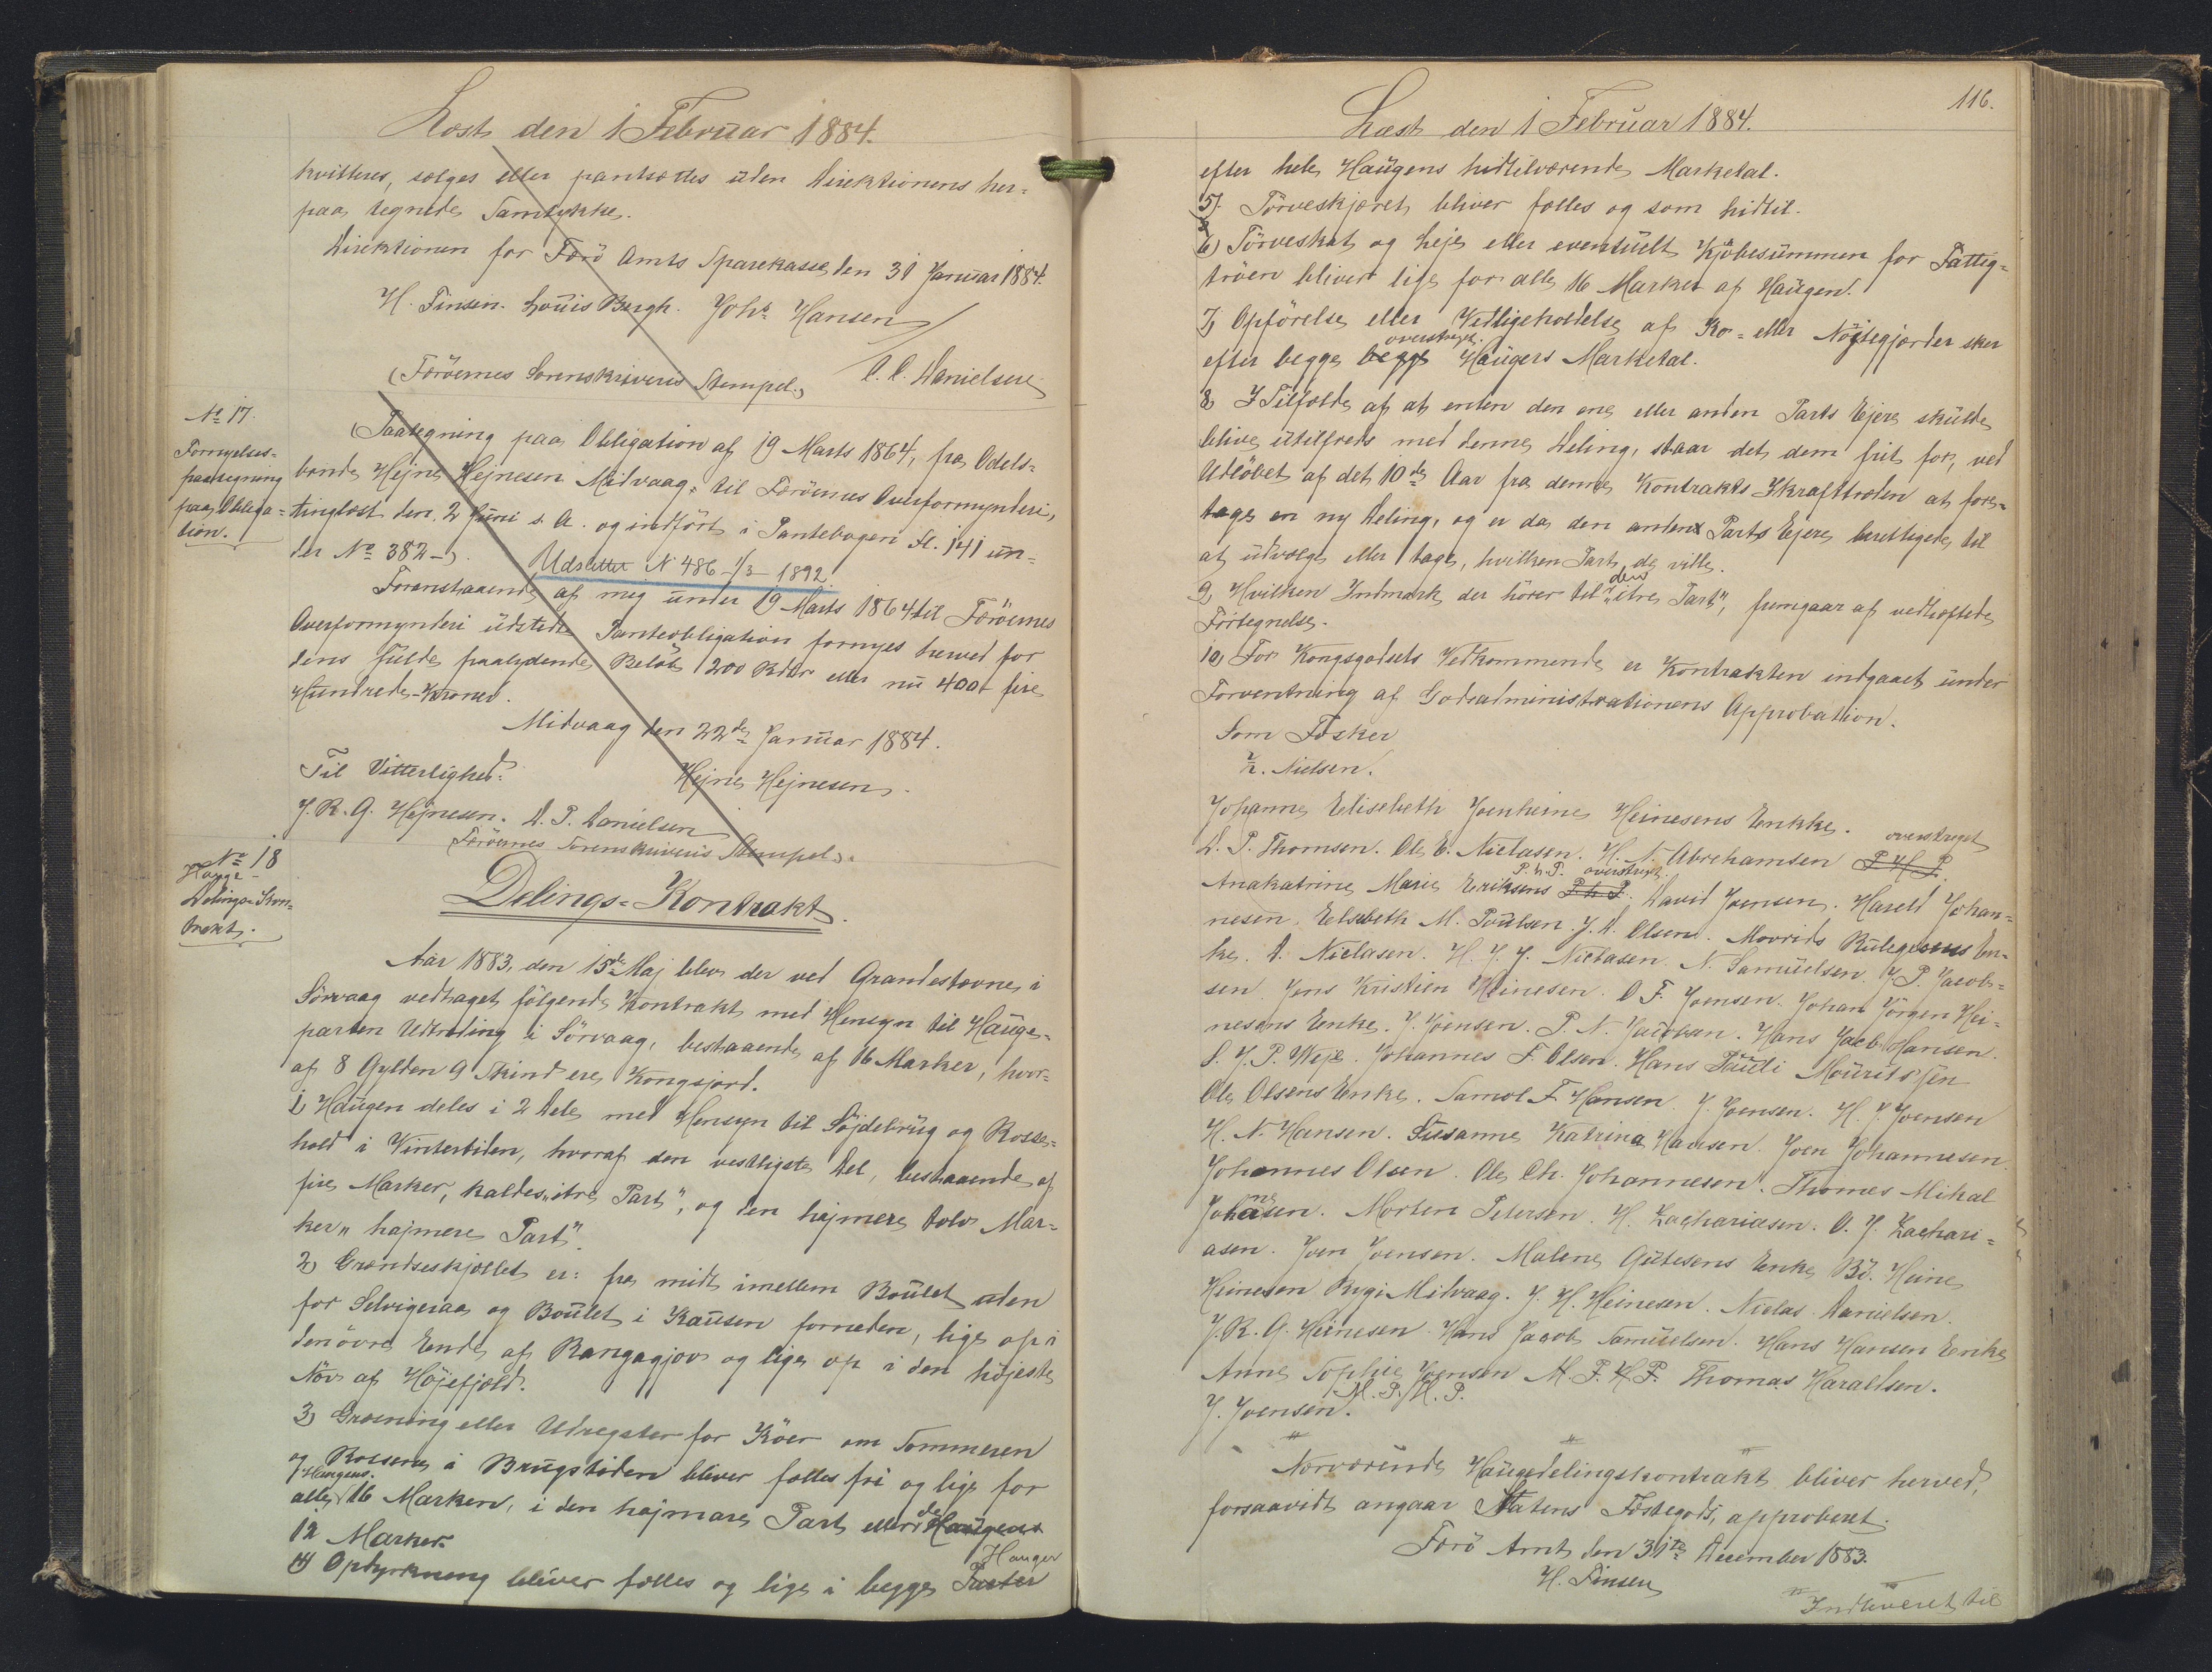 Læst den 1 Februar 1884.
kvitteres, sælges eller pantsættes uden Direktionens her=
paa tegnede Samtykke.
Direktionen for Færö Amts Sparekasse, den 31 Januar 1884.
H. Finsen. Louis Bergh. Johs Hansen
C. C. Danielsen
(Færöernes Sorenskriveris Stempel.)
No 17.
Fornyelses=
paategning
paa Obliga=
tion.
(Paategning paa Obligation af 19 Marts 1864, fra Odels=
bonde Hejne Hejnesen Midvaag, til Færöernes Overformynderi,
tinglæst den 2 Juni s. A. og indført i Pantebogen fl. 141 un=
der No 382-).
Udslettet N 486 - 1/3 - 1892
Foranstaaende af mig under 19 Marts 1864 til Færöernes
Overformynderi udstedte Panteobligation fornyes herved for
dens fulde paalydende Belöb 200 Rdlr eller nu 400 fire
Hundrede Kroner.
Midvaag den 22de Januar 1884.
Til Vitterlighed:
Hejne Hejnesen.
J. R. G. Hejnesen. D. P. Danielsen
(Færöernes Sorenskriveris Stempel.)
No 18
Hauge-
Delings=Kon=
trakt.
Delings=Kontrakt.
Aar 1883, den 15de Maj blev der ved Grandestævne i
Sörvaag vedtaget fölgende Kontrakt med Hensyn til Hauge=
parten Udtræling i Sörvaag, bestaaende af 16 Marker, hvor=
af 8 Gylden 9 Skind ere Kongsjord.
1) Haugen deles i 2 Dele med Hensyn til Söjdebrug og Rosse=
hold i Vintertiden, hvoraf den vestligste Del, bestaaende af
fire Marker, kaldes "itre Part", og den hejmere tolv Mar=
ker "hejmere Part".
2) Grændseskjellet er: fra midt imellem Böulet uden
for Selvigeraa og Böulet i Kausen forneden, lige op i
den övre Ende af Rangagjov og lige op i den höjeste
Növ af Höjefjeld.
3) Græsning eller Udregster for Köer om Sommeren
og Rossene i Brugstiden bliver fælles fri og lige for
Haugens
alle 16 Marker, i den hejmare Part eller de Haugens
12 Marker.
Hauger
4) Opdyrkning bliver fælles og lige i begge Parter
116.
Læst den 1 Februar 1884.
efter hele Haugens hidtilværende Marketal.
5). Törveskjæret bliver fælles og som hidtil.
6) Törveskat og Leje eller eventuelt Kjöbesummen for Fattig=
tröen bliver lige for alle 16 Marker af Haugen.
7) Opförelse eller Vedligeholdelse af Ko= eller Nöjtegjærder sker
overstreget.
efter begge begge Haugers Marketal.
8) I Tilfælde af at enten den ene eller anden Parts Ejere skulde
blive utilfreds med denne Deling, staar det dem frit for, ved
Udløbet af det 10de Aar fra denne Kontrakts Ikrafttræden at fore=
tage en ny Deling, og er da den anden Parts Ejere berettigede til
at udvælge eller tage, hvilken Part de ville.
9) Hvilken Indmark der hörer til den "itre Part", fremgaar af vedhæftede
Fortegnelse.
10) For Kongsgodsets Vedkommende er Kontrakten indgaaet under
Forventning af Godsadministrationens Approbation.
Som Fæsker
Z. Nielsen.
Johanne Elisebeth Joenheine Heinesens Enkke. overstreget
D. P. Thomsen. Ole E. Niclasen. H. N. Abrehamsen P H P
P. h. P. overstreget.
Anakatrine Marie Eriksens P h P. David Joensen. Hareld Johan=
nesen. Elsebeth M. Poulsen. J. D. Olsen. Mourids Rulegsens En=
ke. D. Niclasen. H. J. J. Niclasen. N. Samuelsen. J. P. Jacob=
sen. Jens Kristien Heinesen. O F. Joensen. Johan Jörgen Hei=
nesens Enke. J. Joensen. P. N. Jacobsen. Hans Jacob Hansen.
S. J. P. Weje. Johannes F. Olsen. Hans Paúli Mouritssen
Ole Olsens Enke. Samol F. Hansen. J. Joensen. H. J Joensen
H. N. Hansen. Susanne Katrina Hansen. Joen Johannesen.
Johannes Olsen. Ole Ch. Johannesen. Thomes Mikal
Johansen. Morten Petersen. H. Zachariasen. O. J. Zachari=
asen. Joen Joensen. Malene Gutesens Enke Bö. Heine
Heinesen Rygi Midvaag. J. H. Heinesen. Niclas Danielsen.
J. R. G. Heinesen. Hans Jacob Samuelsen. Hans Hansen Enke
Anne Sophie Joensen M. P. H P. Thomas Haraldsen.
M. P. H. P.
J. Joensen.
Nærværende Haugedelingskontrakt bliver herved,
forsaavidt angaar Statens Fæstegods, approberet.
Færö Amt, den 31te December 1883.
H. Finsen
Indleveret til